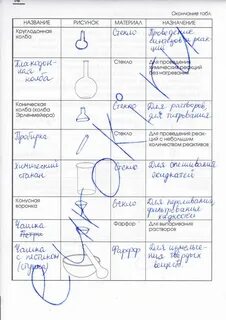 Окончание табл.
НАЗВАНИЕ РИСУНОК МАТЕРИАЛ НАЗНАЧЕНИЕ
Круглодонная
колба
Стекло
Проведение
Плоскодон-
ная
колба
Стекло
Для проведения
химических реакций
без нагревания
Коническая
колба (колба
Эрленмейера)
Стекло
Для растворов,
Пробирка
Стекло
Для проведения реак-
ций с небольшим
количеством реактивов
Химический
стакан
Стекло
Для смешивания
жидкостей
Конусная
воронка
Стекло
Для переливания,
фильтрования
жидкости
Чашка
Фарфор
Для выпаривания
растворов
Чашка
с пестиком
(ступка)
Фарфор
Для измельче-
ния твёрдых
веществ